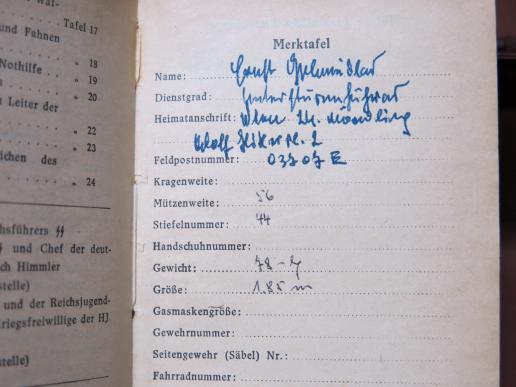 Tafel 17
und Fahnen
„ 18
Nothilfe
„ 19
„ 20
Leiter der
„ 22
„ 23
ichen des
„ 24
hsführers ᛋᛋ
und Chef der deut-
ch Himmler
stelle)
und der Reichsjugend-
riegsfreiwillige der HJ
stelle)
Merktafel
Name: Ernst
Dienstgrad: Untersturmführer
Heimatanschrift: Wien 24. Mödling
Adolf 2
Feldpostnummer: 03707 E
Kragenweite:
Mützenweite: 56
Stiefelnummer: 44
Handschuhnummer:
Gewicht: 78
Größe: 1.85 m
Gasmaskengröße:
Gewehrnummer:
Seitengewehr (Säbel) Nr.:
Fahrradnummer: